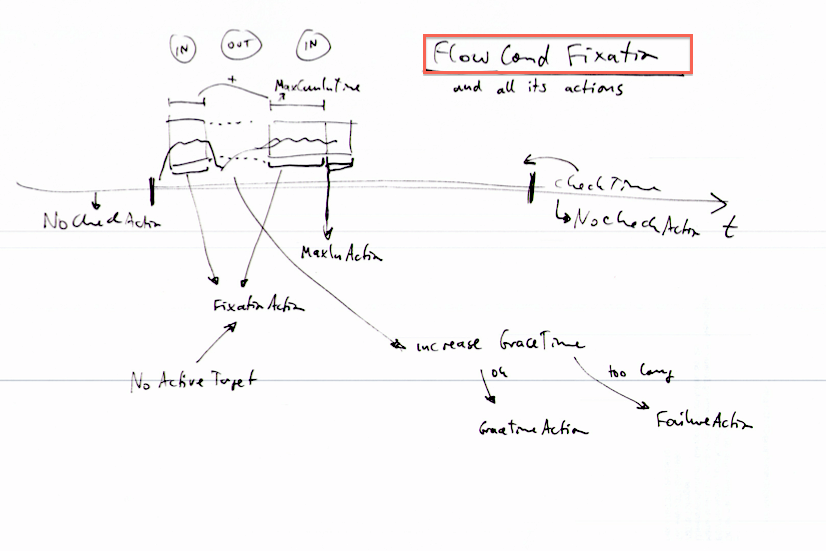 IN OUT IN
Flow Cond Fixation
and all its actions
+
MaxCumInTime
checkTime
NoCheckAction
NoCheckAction
t
MaxInAction
FixationAction
increase GraceTime
No Active Target
ok
too long
GraceTimeAction
FailureAction